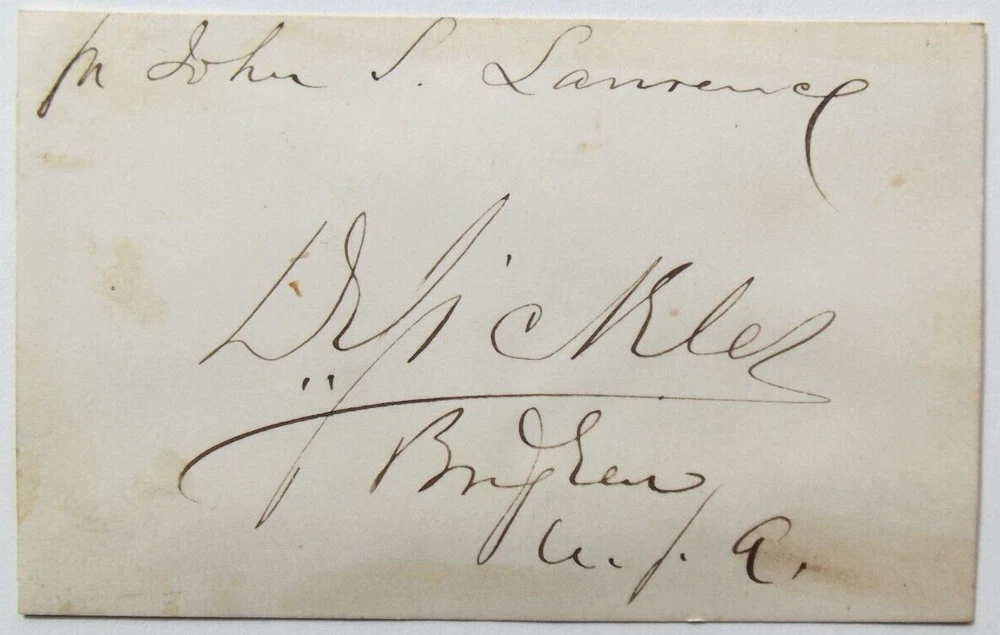 for John S. Lawrence
D E Sickles
Brig Gen
U.S.A.